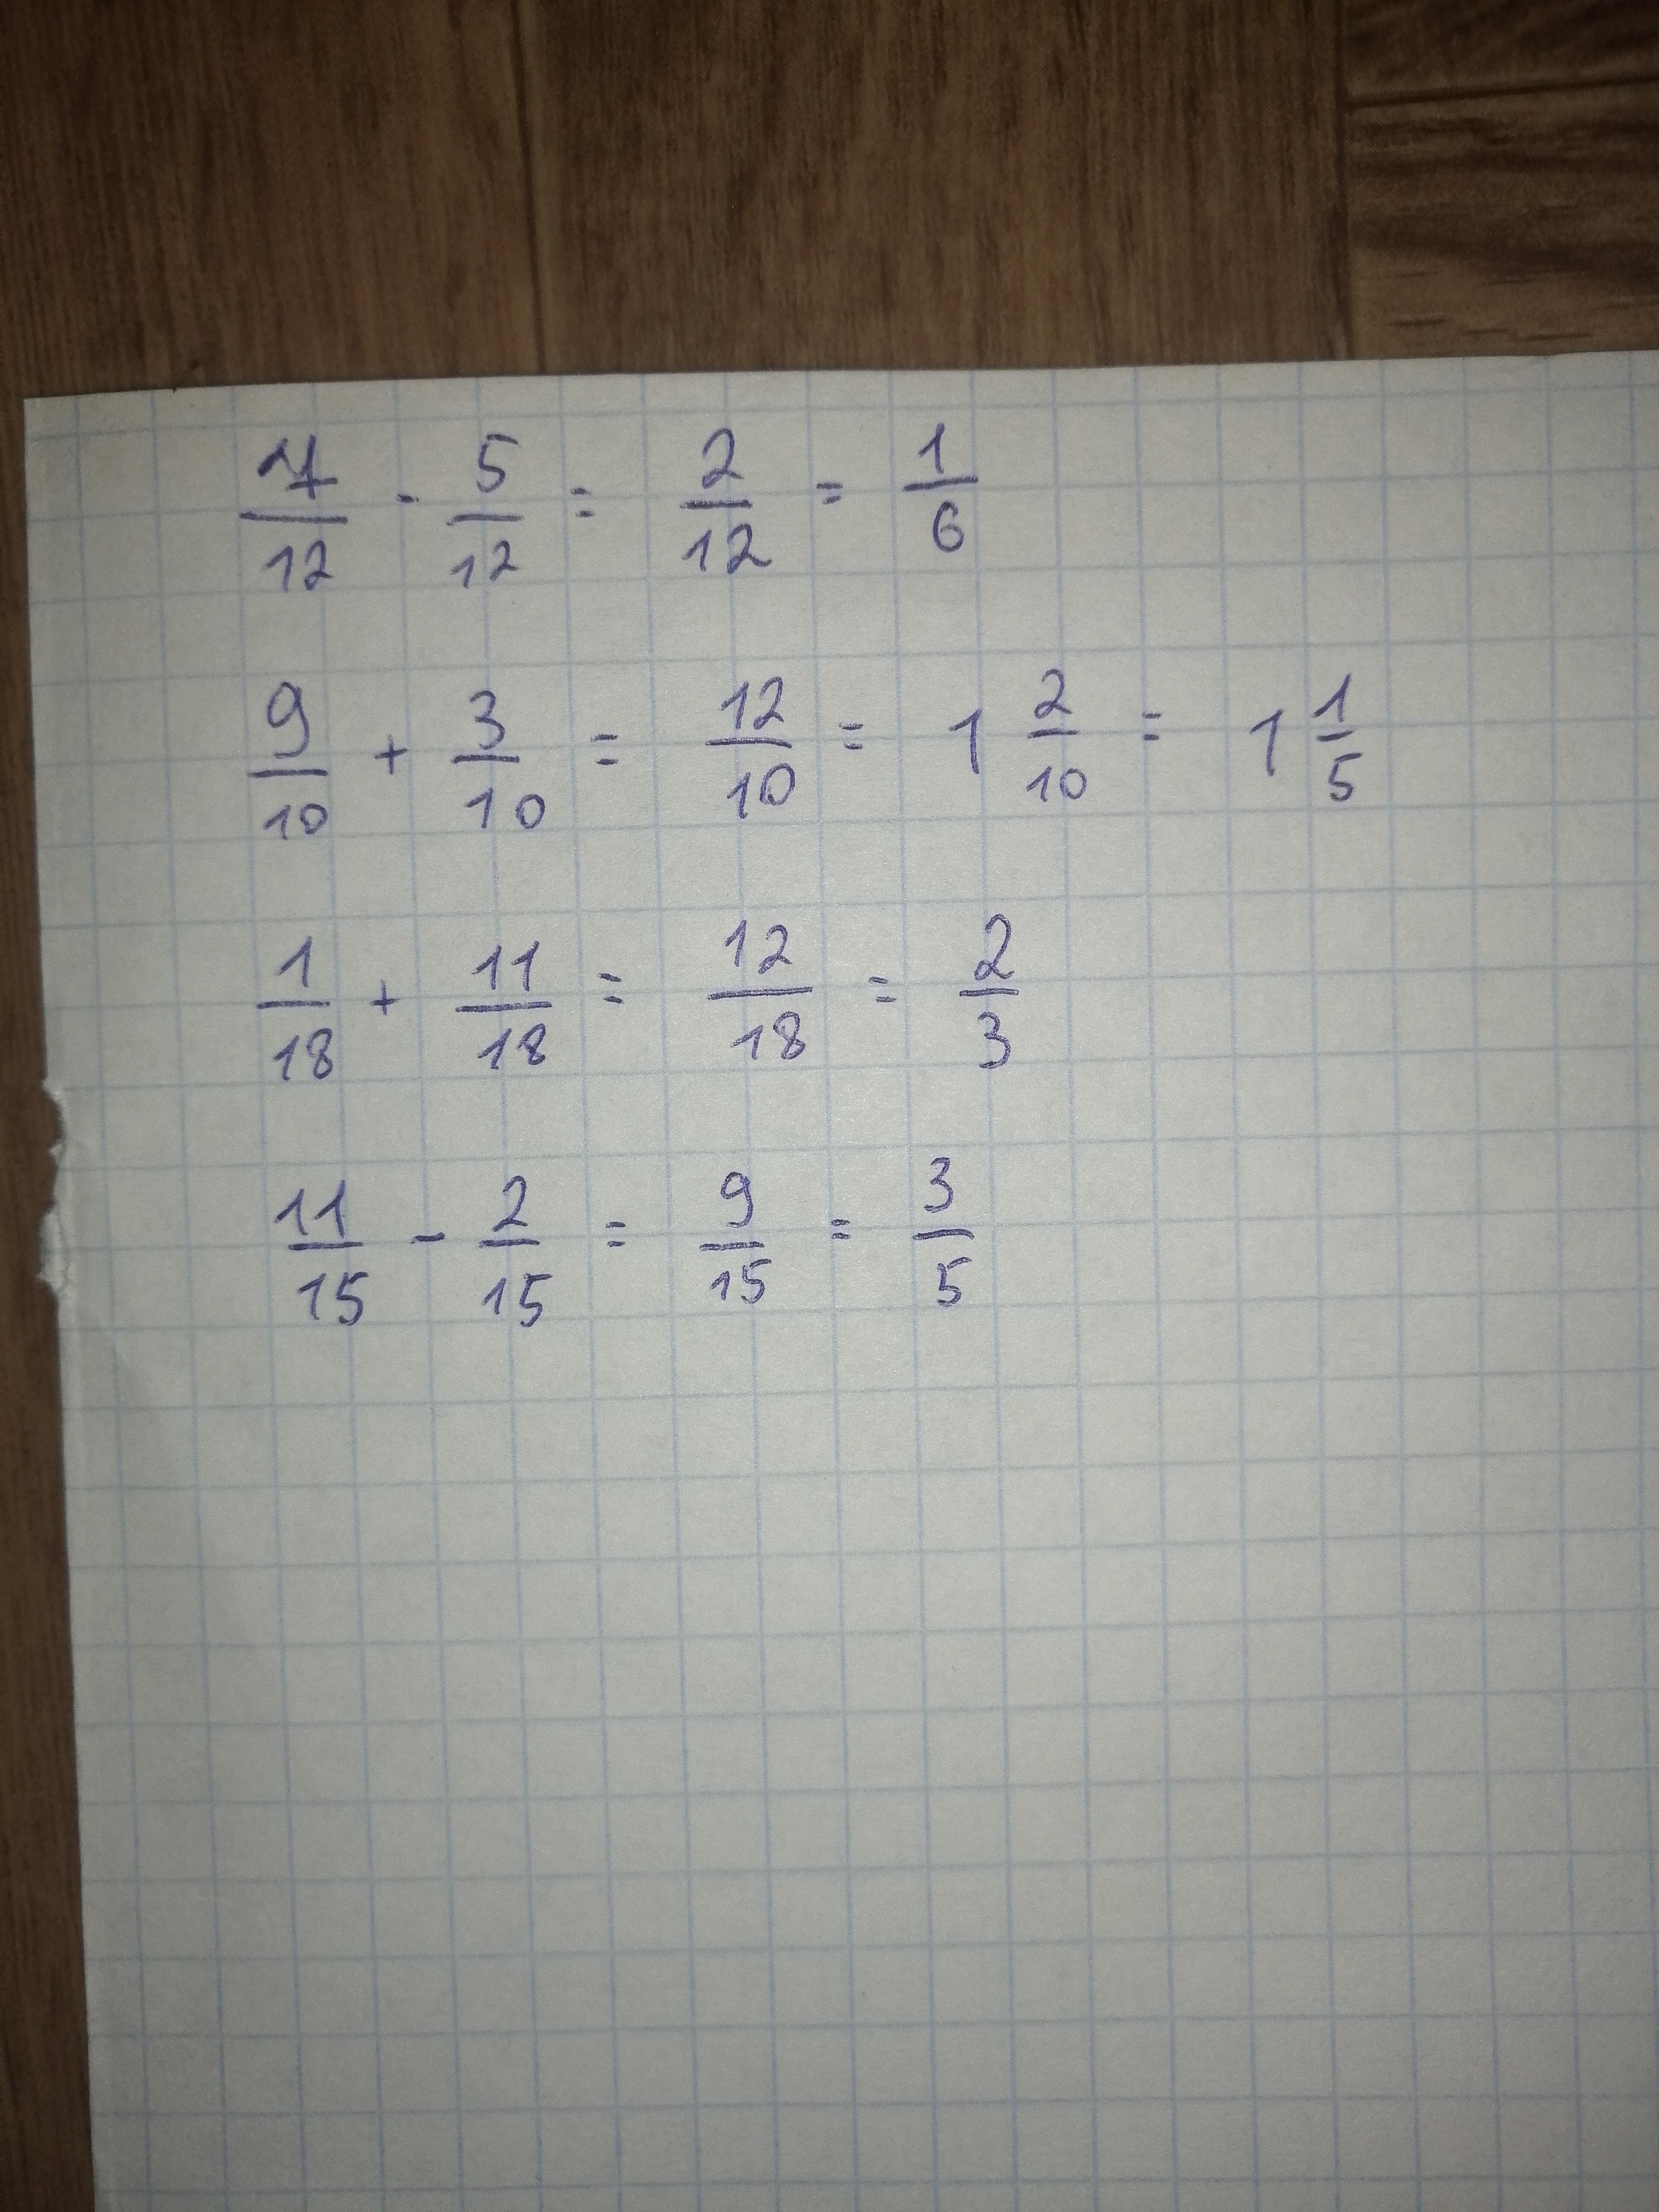 7/12 - 5/12 = 2/12 = 1/6
9/10 + 3/10 = 12/10 = 1 2/10 = 1 1/5
1/18 + 11/18 = 12/18 = 2/3
11/15 - 2/15 = 9/15 = 3/5